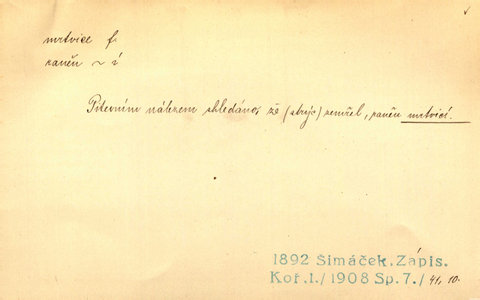 mrtvice f.
raněn ~ í
Pitevním nálezem shledáno, že (strýc) zemřel, raněn mrtvicí.
1892 Šimáček. Zápis.
Koř. I. / 1908 Sp. 7. / 41, 10.